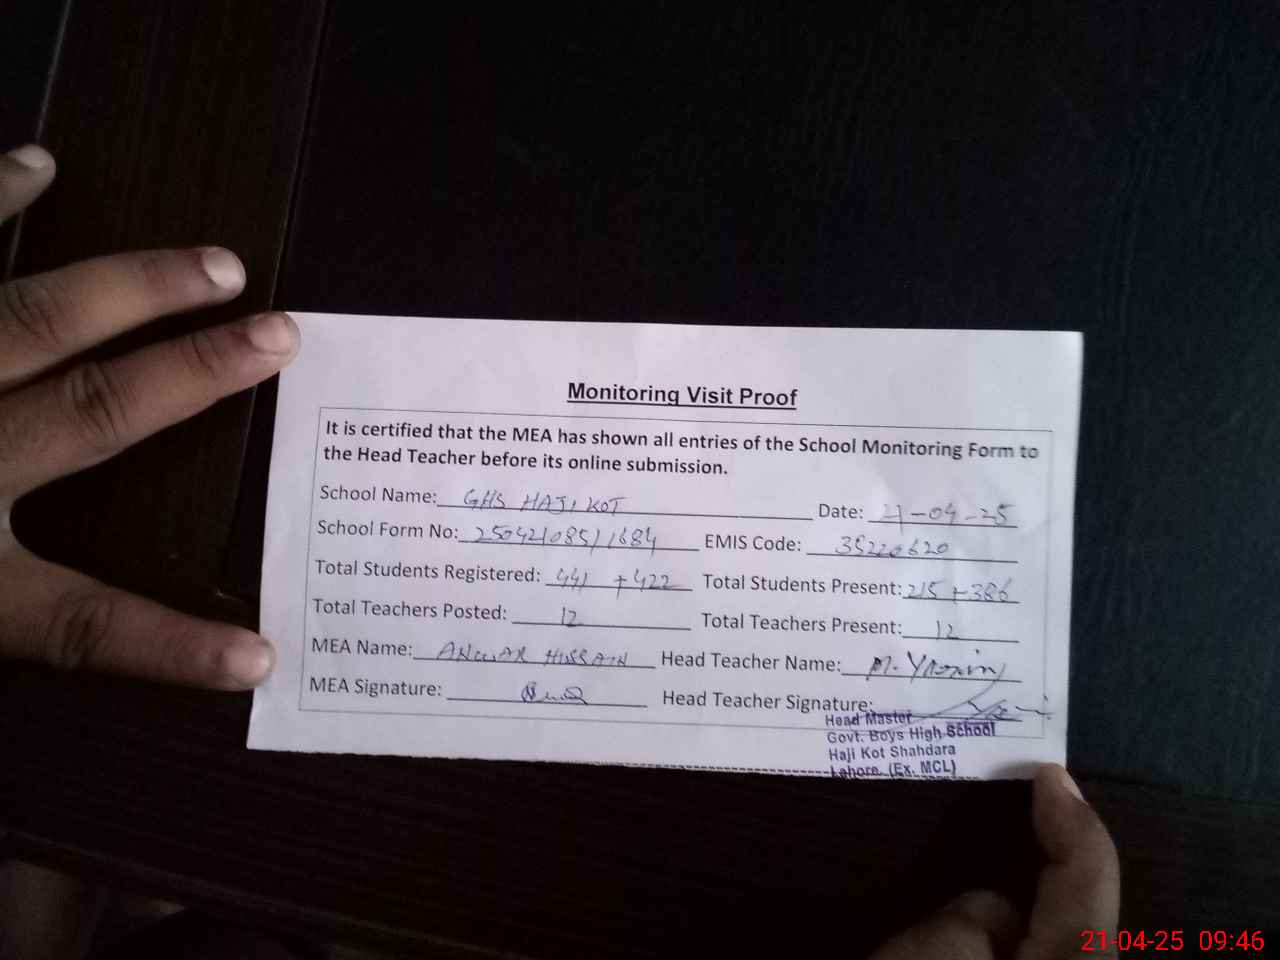 Monitoring Visit Proof
It is certified that the MEA has shown all entries of the School Monitoring Form to
the Head Teacher before its online submission.
School Name: GHS HAJI KOT Date: 21-04-25
School Form No: 25042108511684 EMIS Code: 35220620
Total Students Registered: 441 + 422 Total Students Present: 215 + 386
Total Teachers Posted: 12 Total Teachers Present: 12
MEA Name: ANWAR HUSSAIN Head Teacher Name: M. 
MEA Signature: Head Teacher Signature:
Head Master
Govt. Boys High School
Haji Kot Shahdara
Lahore. (Ex. MCL)
21-04-25 09:46